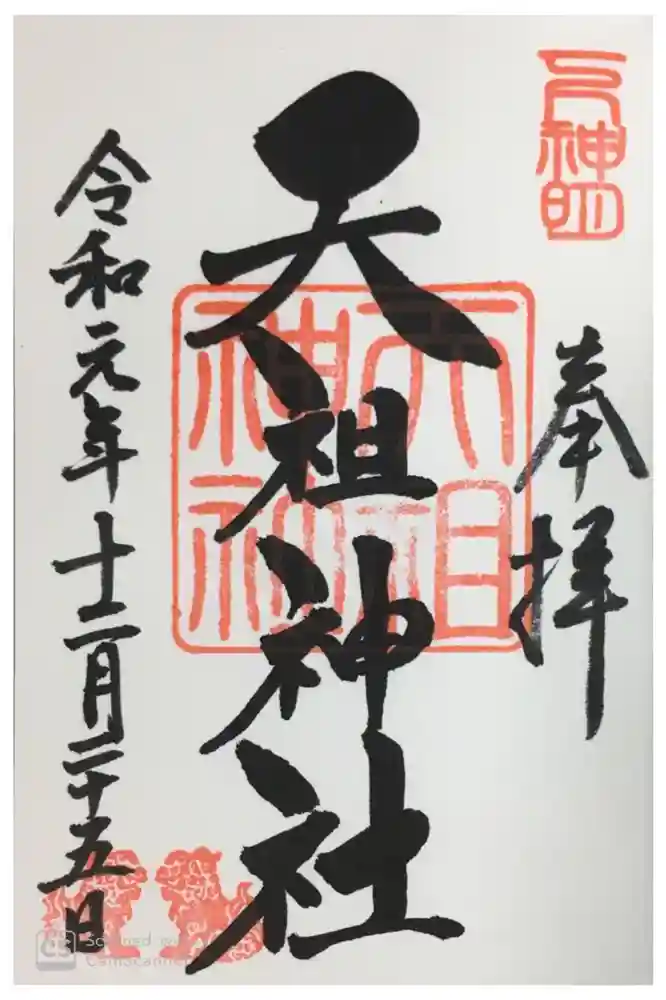 奉拝
天祖神社
令和元年十二月二十五日
天祖神社
CS Scanned with CamScanner